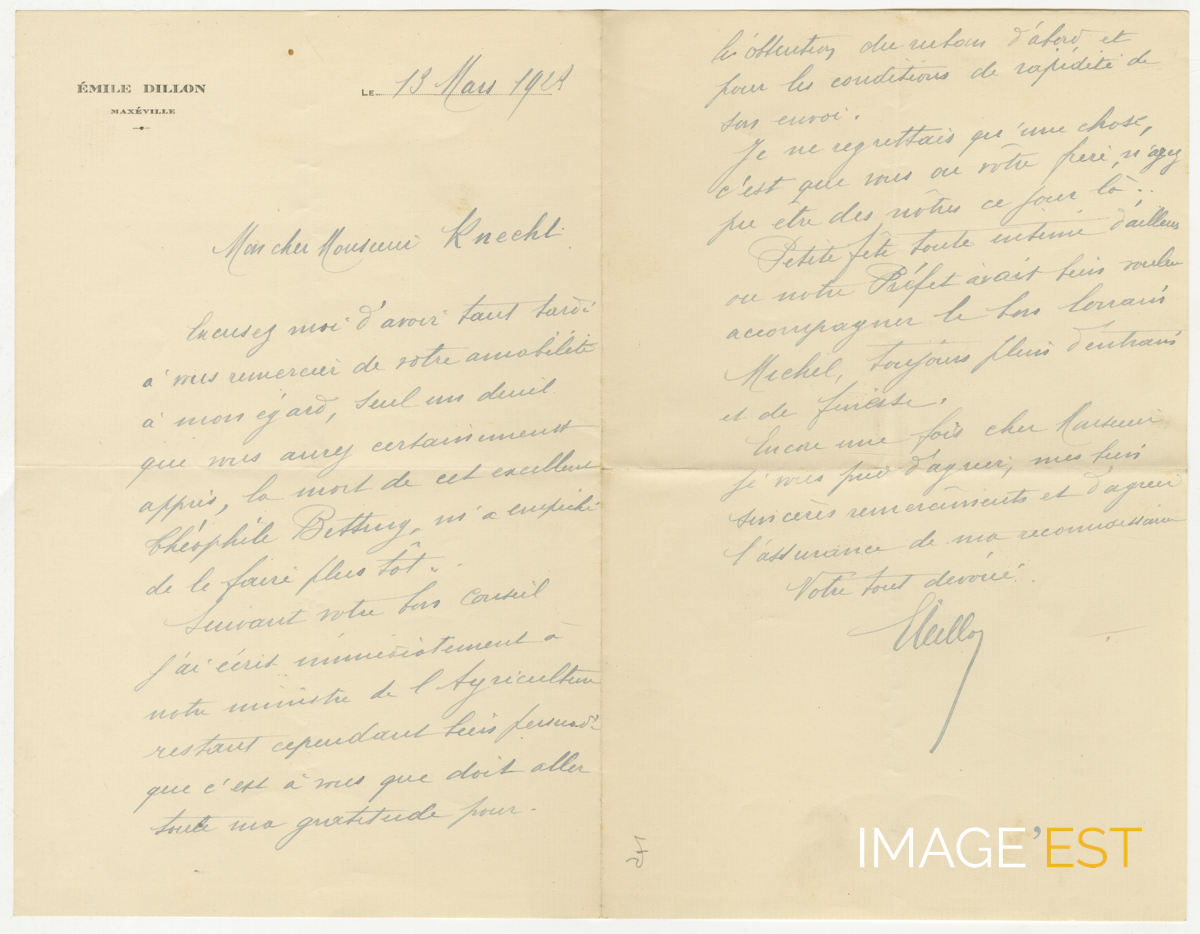 ÉMILE DILLON
MAXÉVILLE
LE 13 Mars 1924
Mon cher Monsieur Knecht
Excusez moi d'avoir tant tardé
à vous remercier de votre amabilité
à mon égard, seul un deuil
que vous aurez certainement
appris, la mort de cet excellent
Théophile m'a empêché
de le faire plus tôt.
Suivant votre bon conseil
j'ai écrit immédiatement à
notre ministre de l'Agriculture
restant cependant bien persuadé
que c'est à vous que doit aller
toute ma gratitude pour
l'obtention du ruban d'abord et
pour les conditions de rapidité de
son envoi.
Je ne regrettais qu'une chose,
c'est que vous ou votre frère, n'ayez
pu être des nôtres ce jour là..
Petite fête toute intime d'ailleurs
ou notre Préfet avait bien voulu
accompagner le bon lorrain
Michel, toujours plein d'entrain
et de finesse.
Encore une fois cher Monsieur
je vous prie d'agréer, mes bien
sincères remerciments et d'agréer
l'assurance de ma reconnaissance
Votre tout dévoué.
EDillon
21
IMAGE'EST